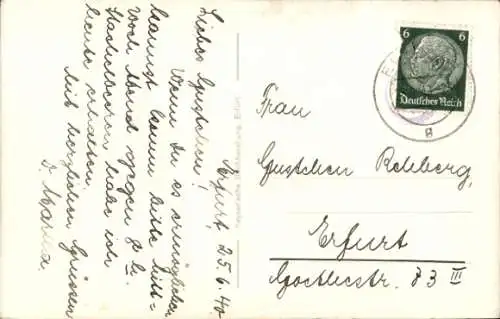 Erfurt, 25.6.40.
Liebes Gustchen!
Wenn Du es ermöglichen
kannst komm bitte Mitt-
woch Abend gegen 8 U.
Stachelbeeren habe ich
heute erhalten.
Mit herzlichen Grüssen
D. Marina.
6 6
Deutsches Reich
8
Frau
Gustchen Rehberg,
Erfurt
Goethestr. 83 III